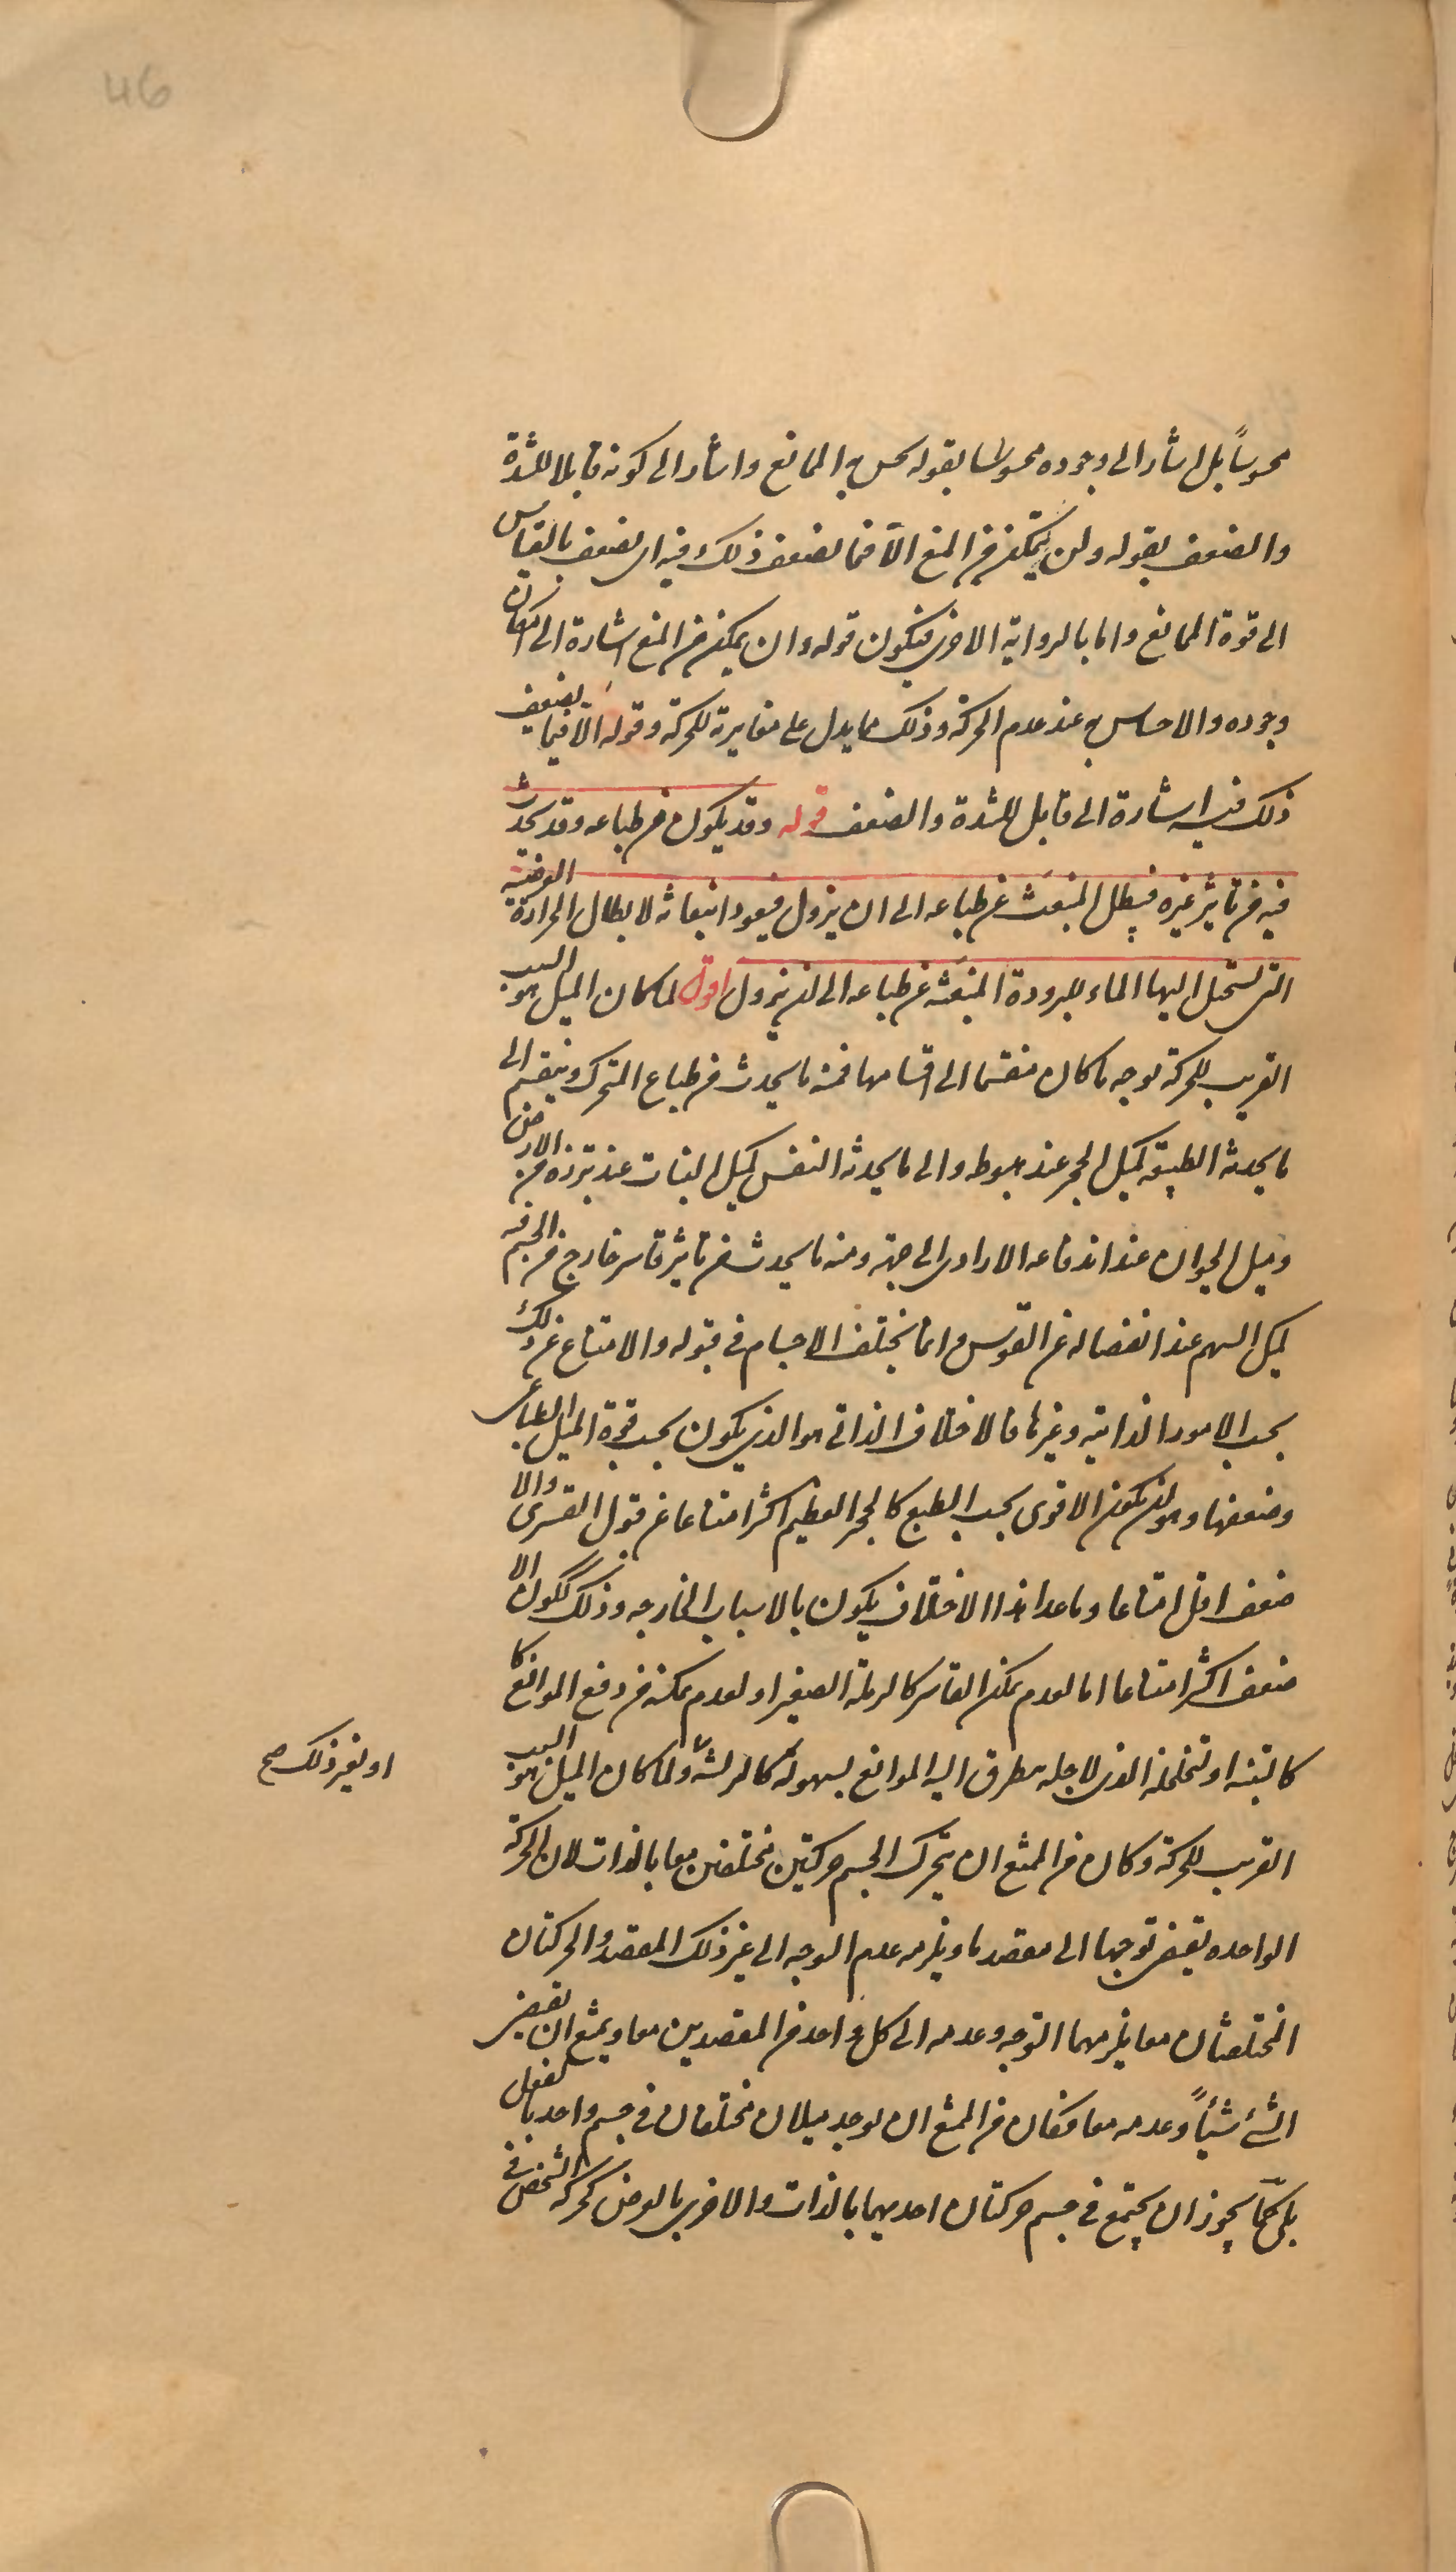 46
محسوساً بل اشار الى وجوده محسوسا بقوله يحس به الممانع واشار الى كونه قابلا للشدة
والضعف بقوله ولن يتمكن من المنع الا فيما يضعف ذلك فيه اى يضعف بالقياس
الى قوة الممانع واما بالرواية الاخرى فيكون قوله وان تمكن من المنع اشارة الى امكان
وجوده والاحساس به عند عدم الحركة وذلك مما يدل على مغايرته للحركة وقوله الا فيما يضعف
ذلك فيه اشارة الى قابل للشدة والضعف قوله وقد يكون من طباعه وقد يحدث
فيه من تاثير غيره فيبطل المنبعث عن طباعه الى ان يزول فيعود انبعاثه لابطال الحرارة العرضية
التى تستحيل اليها الماء للبرودة المنبعثة عن طباعه الى ان تزول اقول لما كان الميل هو السبب
القريب للحركة بوجه ما كان منقسما الى اقسامها فمنه ما يحدث من طباع المتحرك وينقسم الى
ما يحدثه الطبيعة كميل الحجر عند هبوطه والى ما يحدثه النفس كميل النبات عند تبرزه من الارض
وميل الحيوان عند اندفاعه الارادى الى جهة ومنه ما يحدث من تاثير قاسر خارج من الجسم فيه
كميل السهم عند انفصاله عن القوس وانما يختلف الاجسام فى قبوله والامتناع عن ذلك
بحسب الامور الذاتية وغيرها فالاختلاف الذاتى هو الذى يكون بحسب قوة الميل الطباعى
وضعفها وهو ان يكون الاقوى بحسب الطبع كالحجر العظيم اكثر امتناعا عن قبول القسرى والا
ضعف اقل امتناعا وما عدا هذا الاختلاف يكون بالاسباب الخارجه وذلك ككون الا
ضعف اكثر امتناعا اما لعدم تمكن القاسر كالرملة الصغير او لعدم تمكنه من دفع الموانع كا
كالتبنه او لتخلخله الذى لاجله يتطرق اليه الموانع بسهولة كالريشة ولما كان الميل هو السبب
او لغير ذلك صح
القريب للحركة وكان من الممتنع ان يتحرك الجسم حركتين مختلفتين معا بالذات لان الحركة
الواحده يقتضى توجها الى مقصد ما ويلزمه عدم التوجه الى غير ذلك المقصد والحركتان
المختلفتان معا يلزمهما التوجه وعدمه الى كل واحد من المقصدين معا ويمتنع ان يقتضى
الشئ شيئاً وعدمه معا فكان من الممتنع ان يوجد ميلان مختلفان فى جسم واحد بالفعل
بلى كما يجوز ان يجتمع فى جسم حركتان احديهما بالذات والاخرى بالعرض كحركة الشخص فى